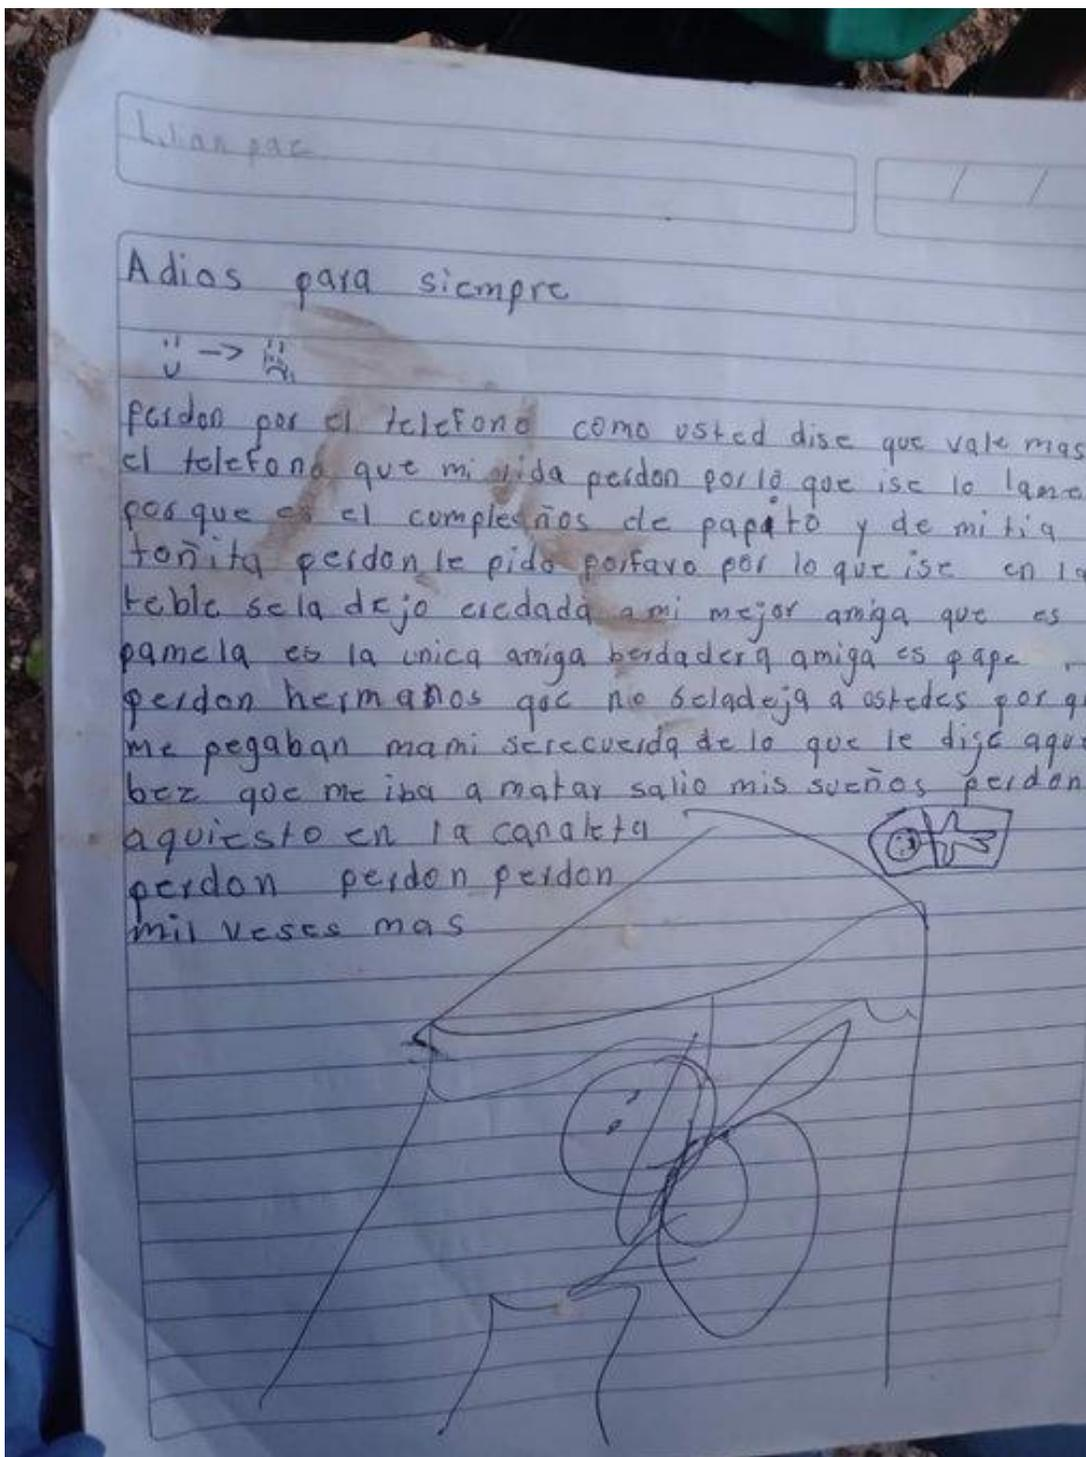 Adios para siempre
perdon por el telefono como usted dise que vale mas
el telefono que mi vida perdon por lo que ise lo lame
por que es el compleaños de papito y de mi tia
toñita perdon le pido porfavo por lo que ise en la
teble se la dejo eredada a mi mejor amiga que es
pamela es la unica amiga berdadera amiga es pape
perdon hermanos que no seladeja a ostedes por q
me pegaban mami serecuerda de lo que le dije aque
bez que me iba a matar salio mis sueños perdon
aquiesto en la canaleta
perdon perdon perdon
mil veses mas